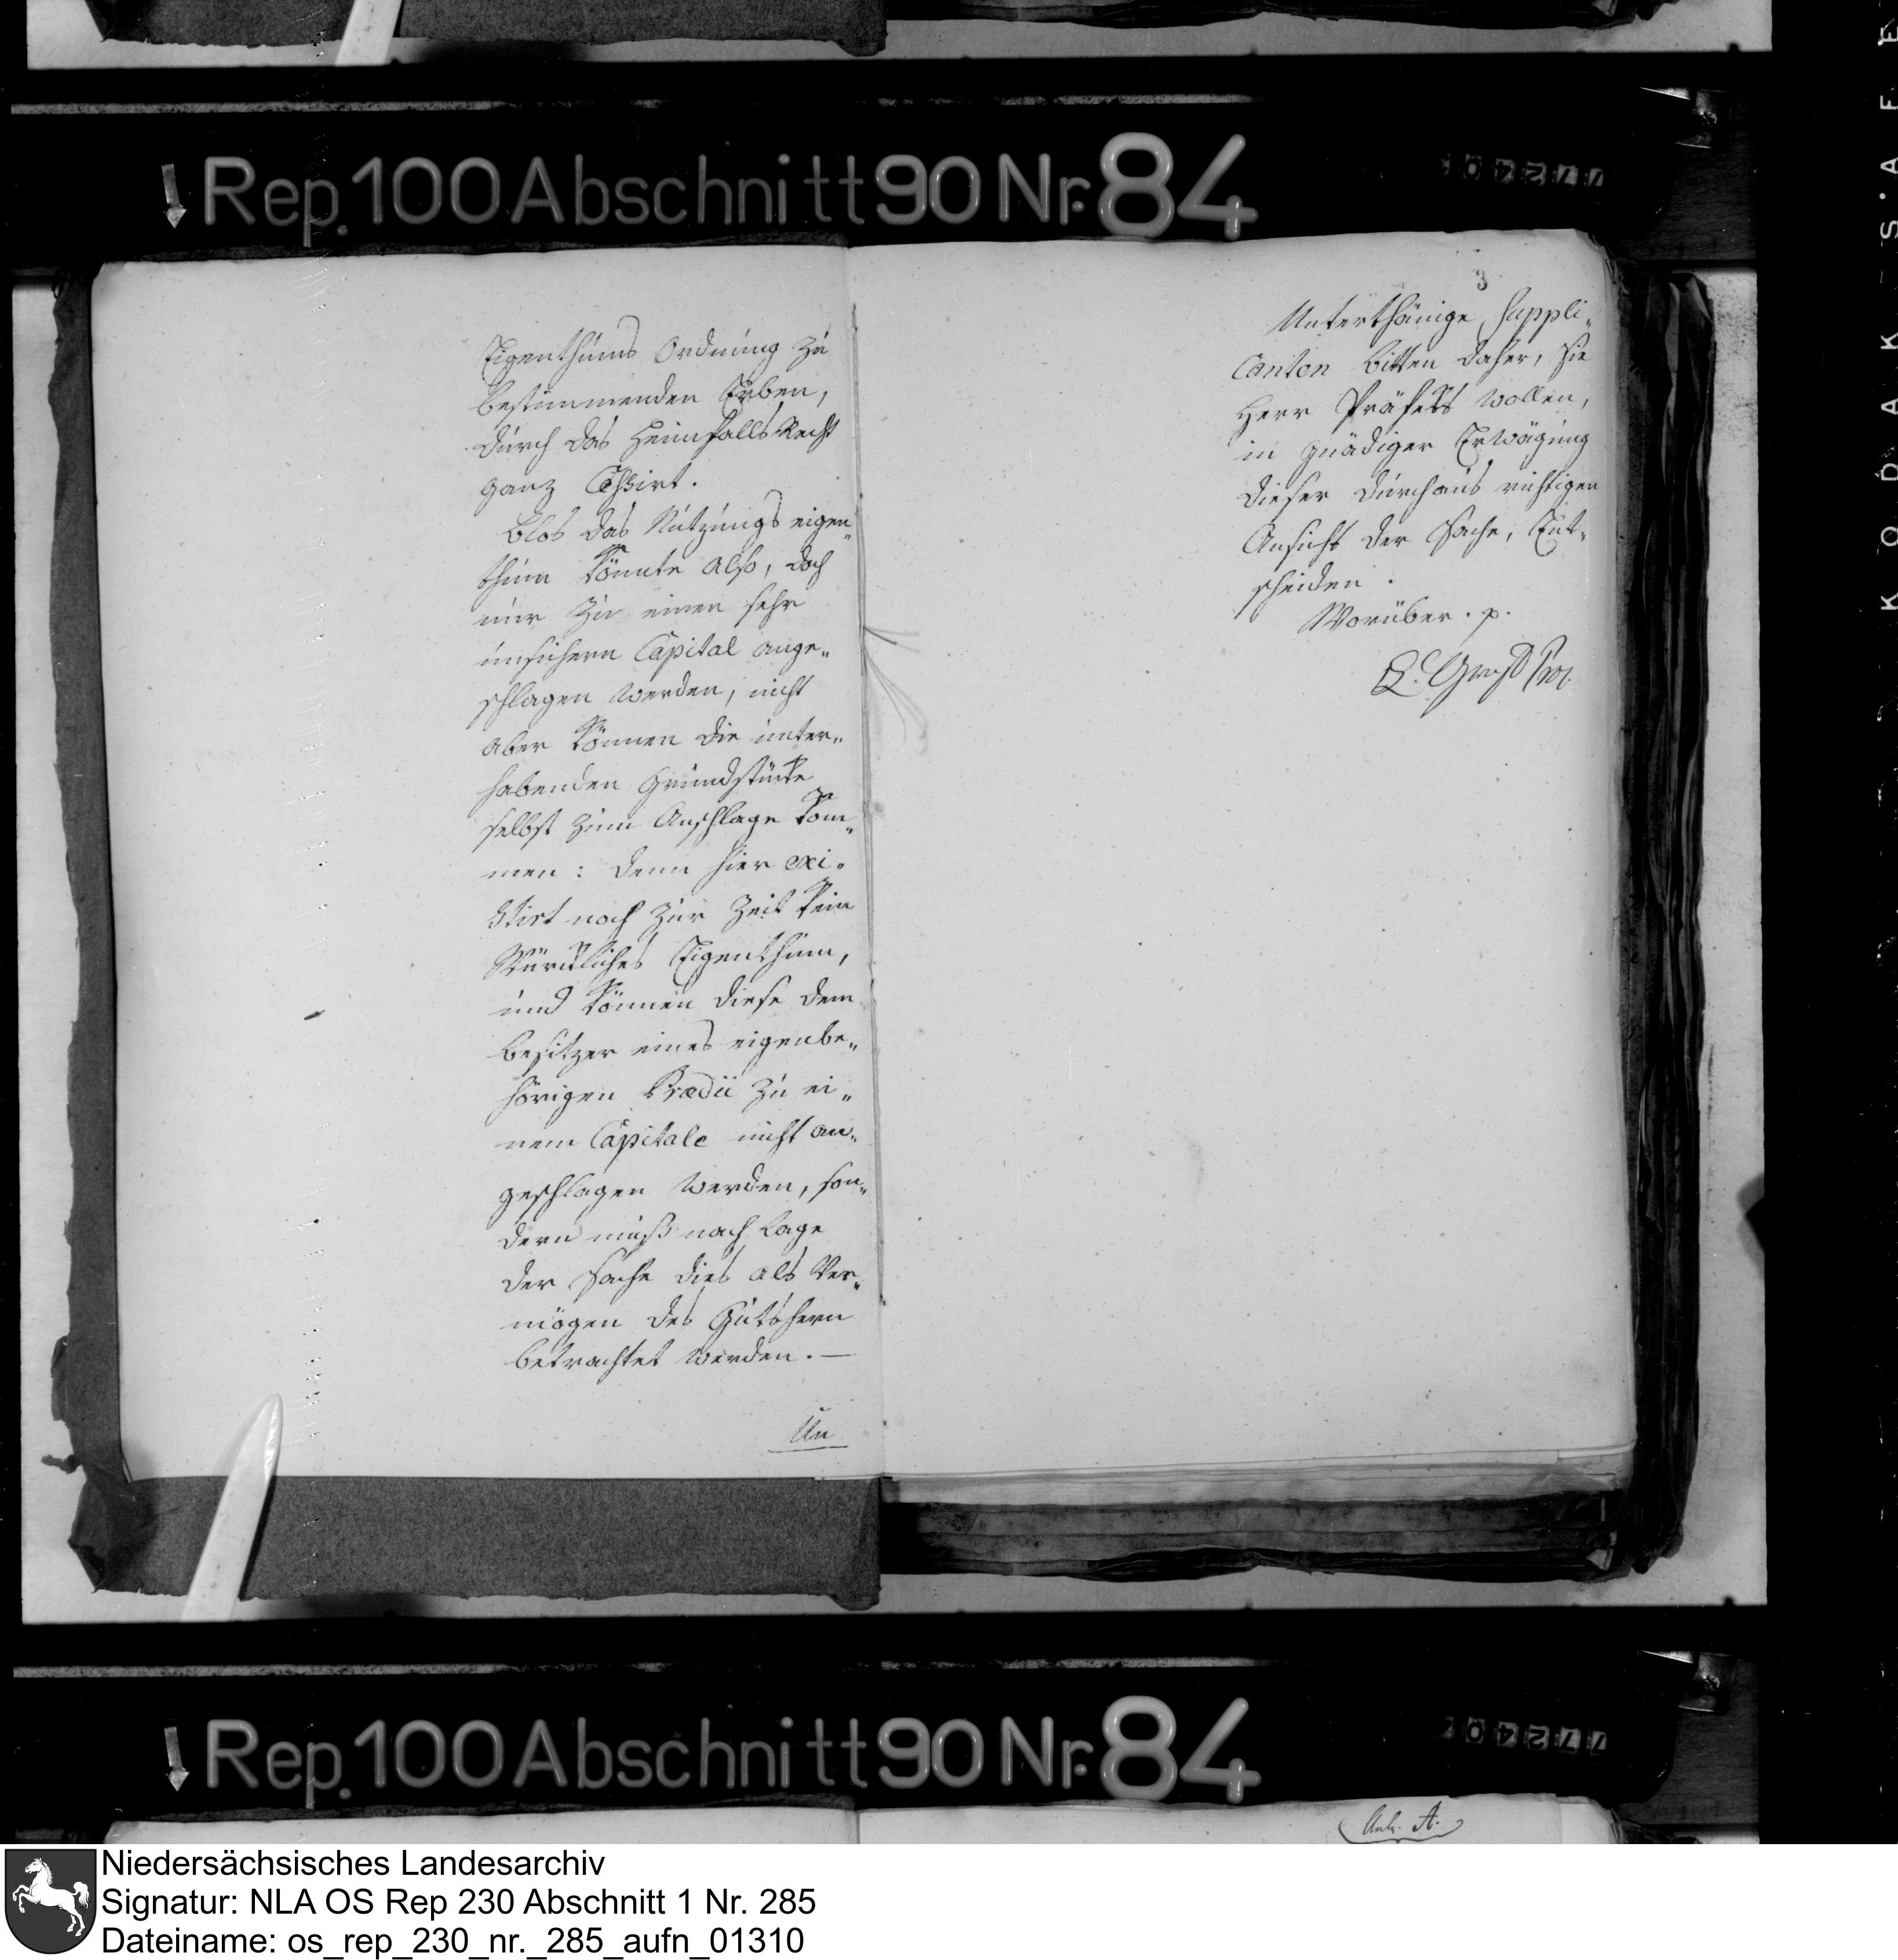 Rep. 100 Abschnitt 90 Nr. 84
77240
Eigenthums Ordnung zu
bestimmenden Erben,
durch das Heimfalls Recht
ganz Cessirt.
Blos das Nutzungs eigen„
thum könnte also, doch
nur zu einen sehr
unsichern Capital ange„
schlagen werden, nicht
aber können die unter„
habenden Grundstücke
selbst zum Anschlage kom„
men: denn hier exi„
stirt noch zur Zeit kein
Würkliches Eigenthum,
und können diese dem
besitzer eines eigenbe„
hörigen Prædii zu ei„
nem Capitale nicht an„
geschlagen werden, son„
dern muß nach Lage
der Sache dies als Ver„
mögen des Gutsherrn
betrachtet werden. —
Un
3
Unterthänige Suppli„
Canten bitten daher, Sie
Herr Präfekt wollen,
in gnädiger Erwägung
dieser durchaus richtigen
Ansicht der Sache, Ent„
scheiden.
Worüber. p.
Rep. 100 Abschnitt 90 Nr. 84
77240
Anl. A.
KODAK SAFE
Niedersächsisches Landesarchiv
Signatur: NLA OS Rep 230 Abschnitt 1 Nr. 285
Dateiname: os_rep_230_nr._285_aufn_01310